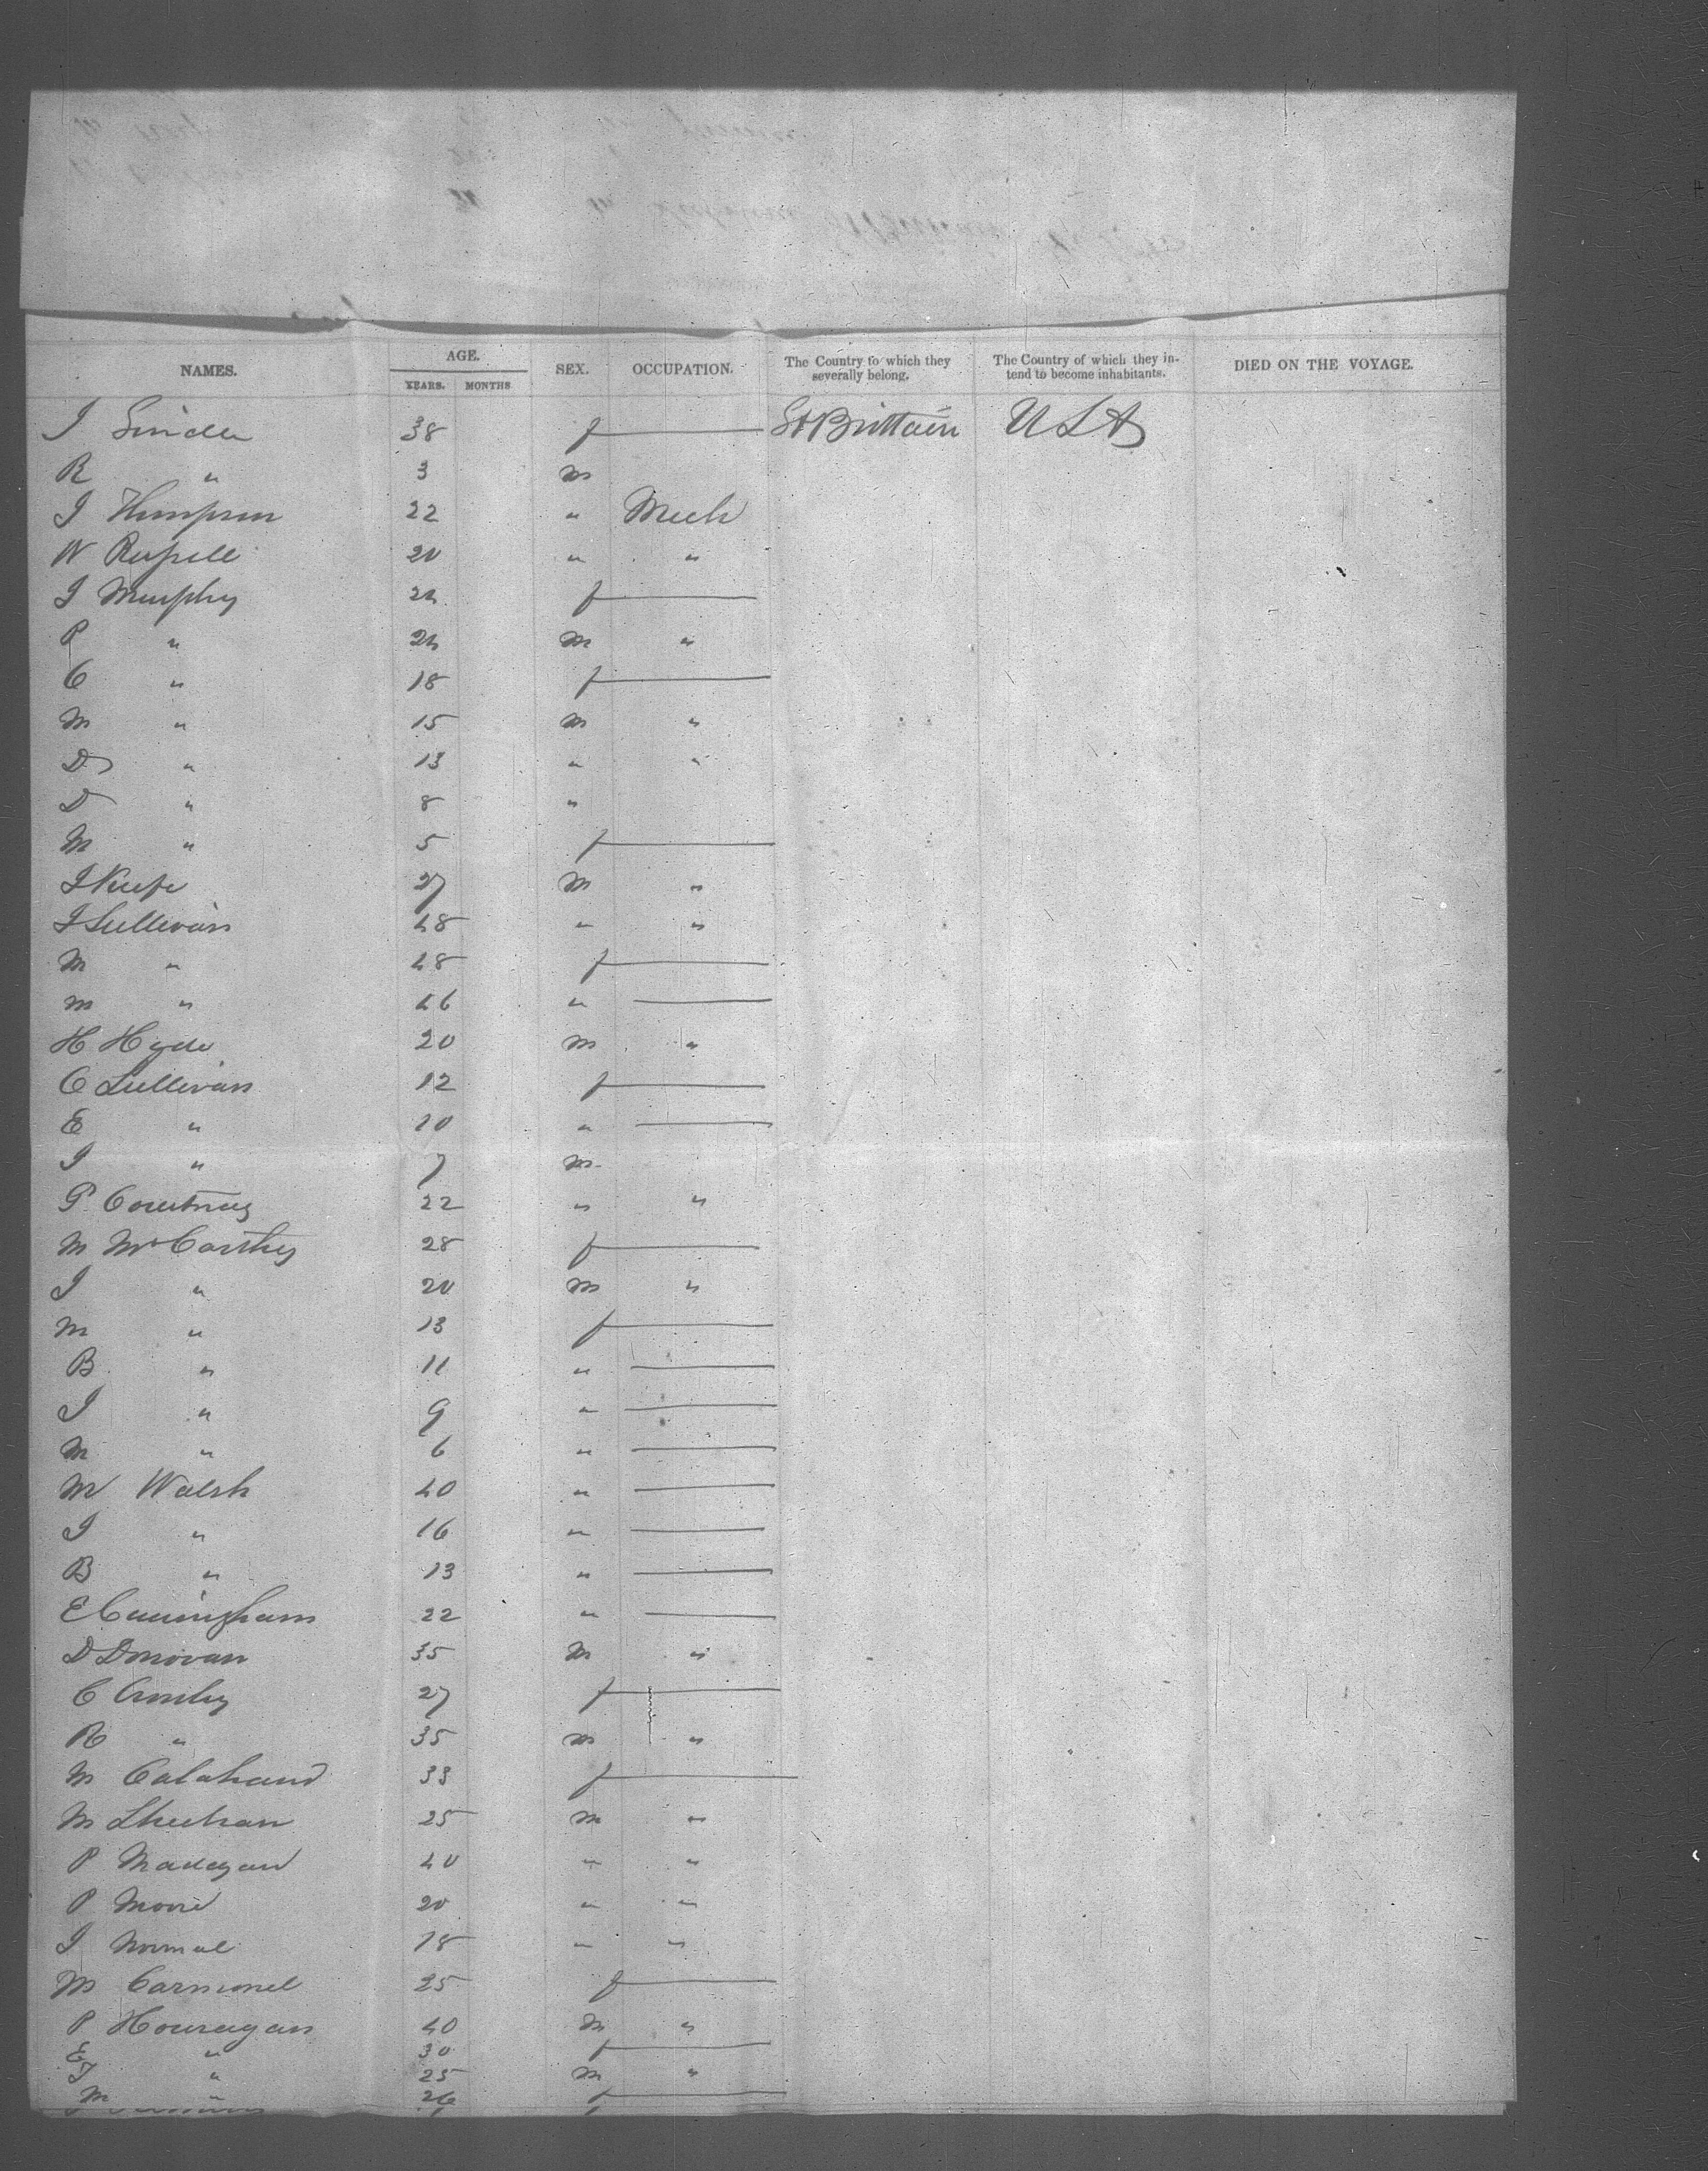 NAMES. AGE. YEARS. MONTHS SEX. OCCUPATION. The Country to which they severally belong. The Country of which they intend to become inhabitants. DIED ON THE VOYAGE.
J 38 f Gt Brittain USA
R " 3 m
J Thompson 22 " Mech
W Russell 20 " "
J Murphy f
P " m "
C " 18 f
M " 15 m "
D " 13 " "
D " 8 "
M " 5 f
J Keefe 27 m "
J Sullivan 48 " "
M " 48 f
M " 46 "
H Hyde 20 m "
C Sullivan 12 f
E " 10 "
J " 7 m
P Courtney 22 " "
M McCarthy 28 f
J " 20 m "
M " 13 f
B " 11 "
J " 9 "
M " 6 "
M Walsh 40 "
J " 16 "
B " 13 "
E Cuningham 22 "
D Donovan 35 m "
C Crowley 27 f
R " 35 m "
M Calahand 33 f
M Sheehan 25 m "
P Madegan 40 " "
P Moore 20 " "
J Normal 18 " "
M 25 f
P Houragan 40 m "
E " 30 f
J " 25 m "
M " 26 f